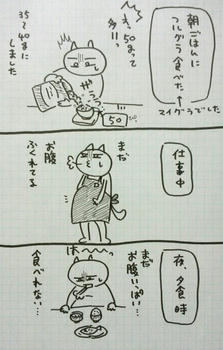 朝ごはんに
フルグラ食べた
↑
マイグラでした
えっ
50gって
多っ!
ザラ
50
35〜40gに
しました
仕事中
まだ
お腹
ふくれてる
夜、夕食時
は〜っ
まだ
お腹いっぱい…
食べれない…